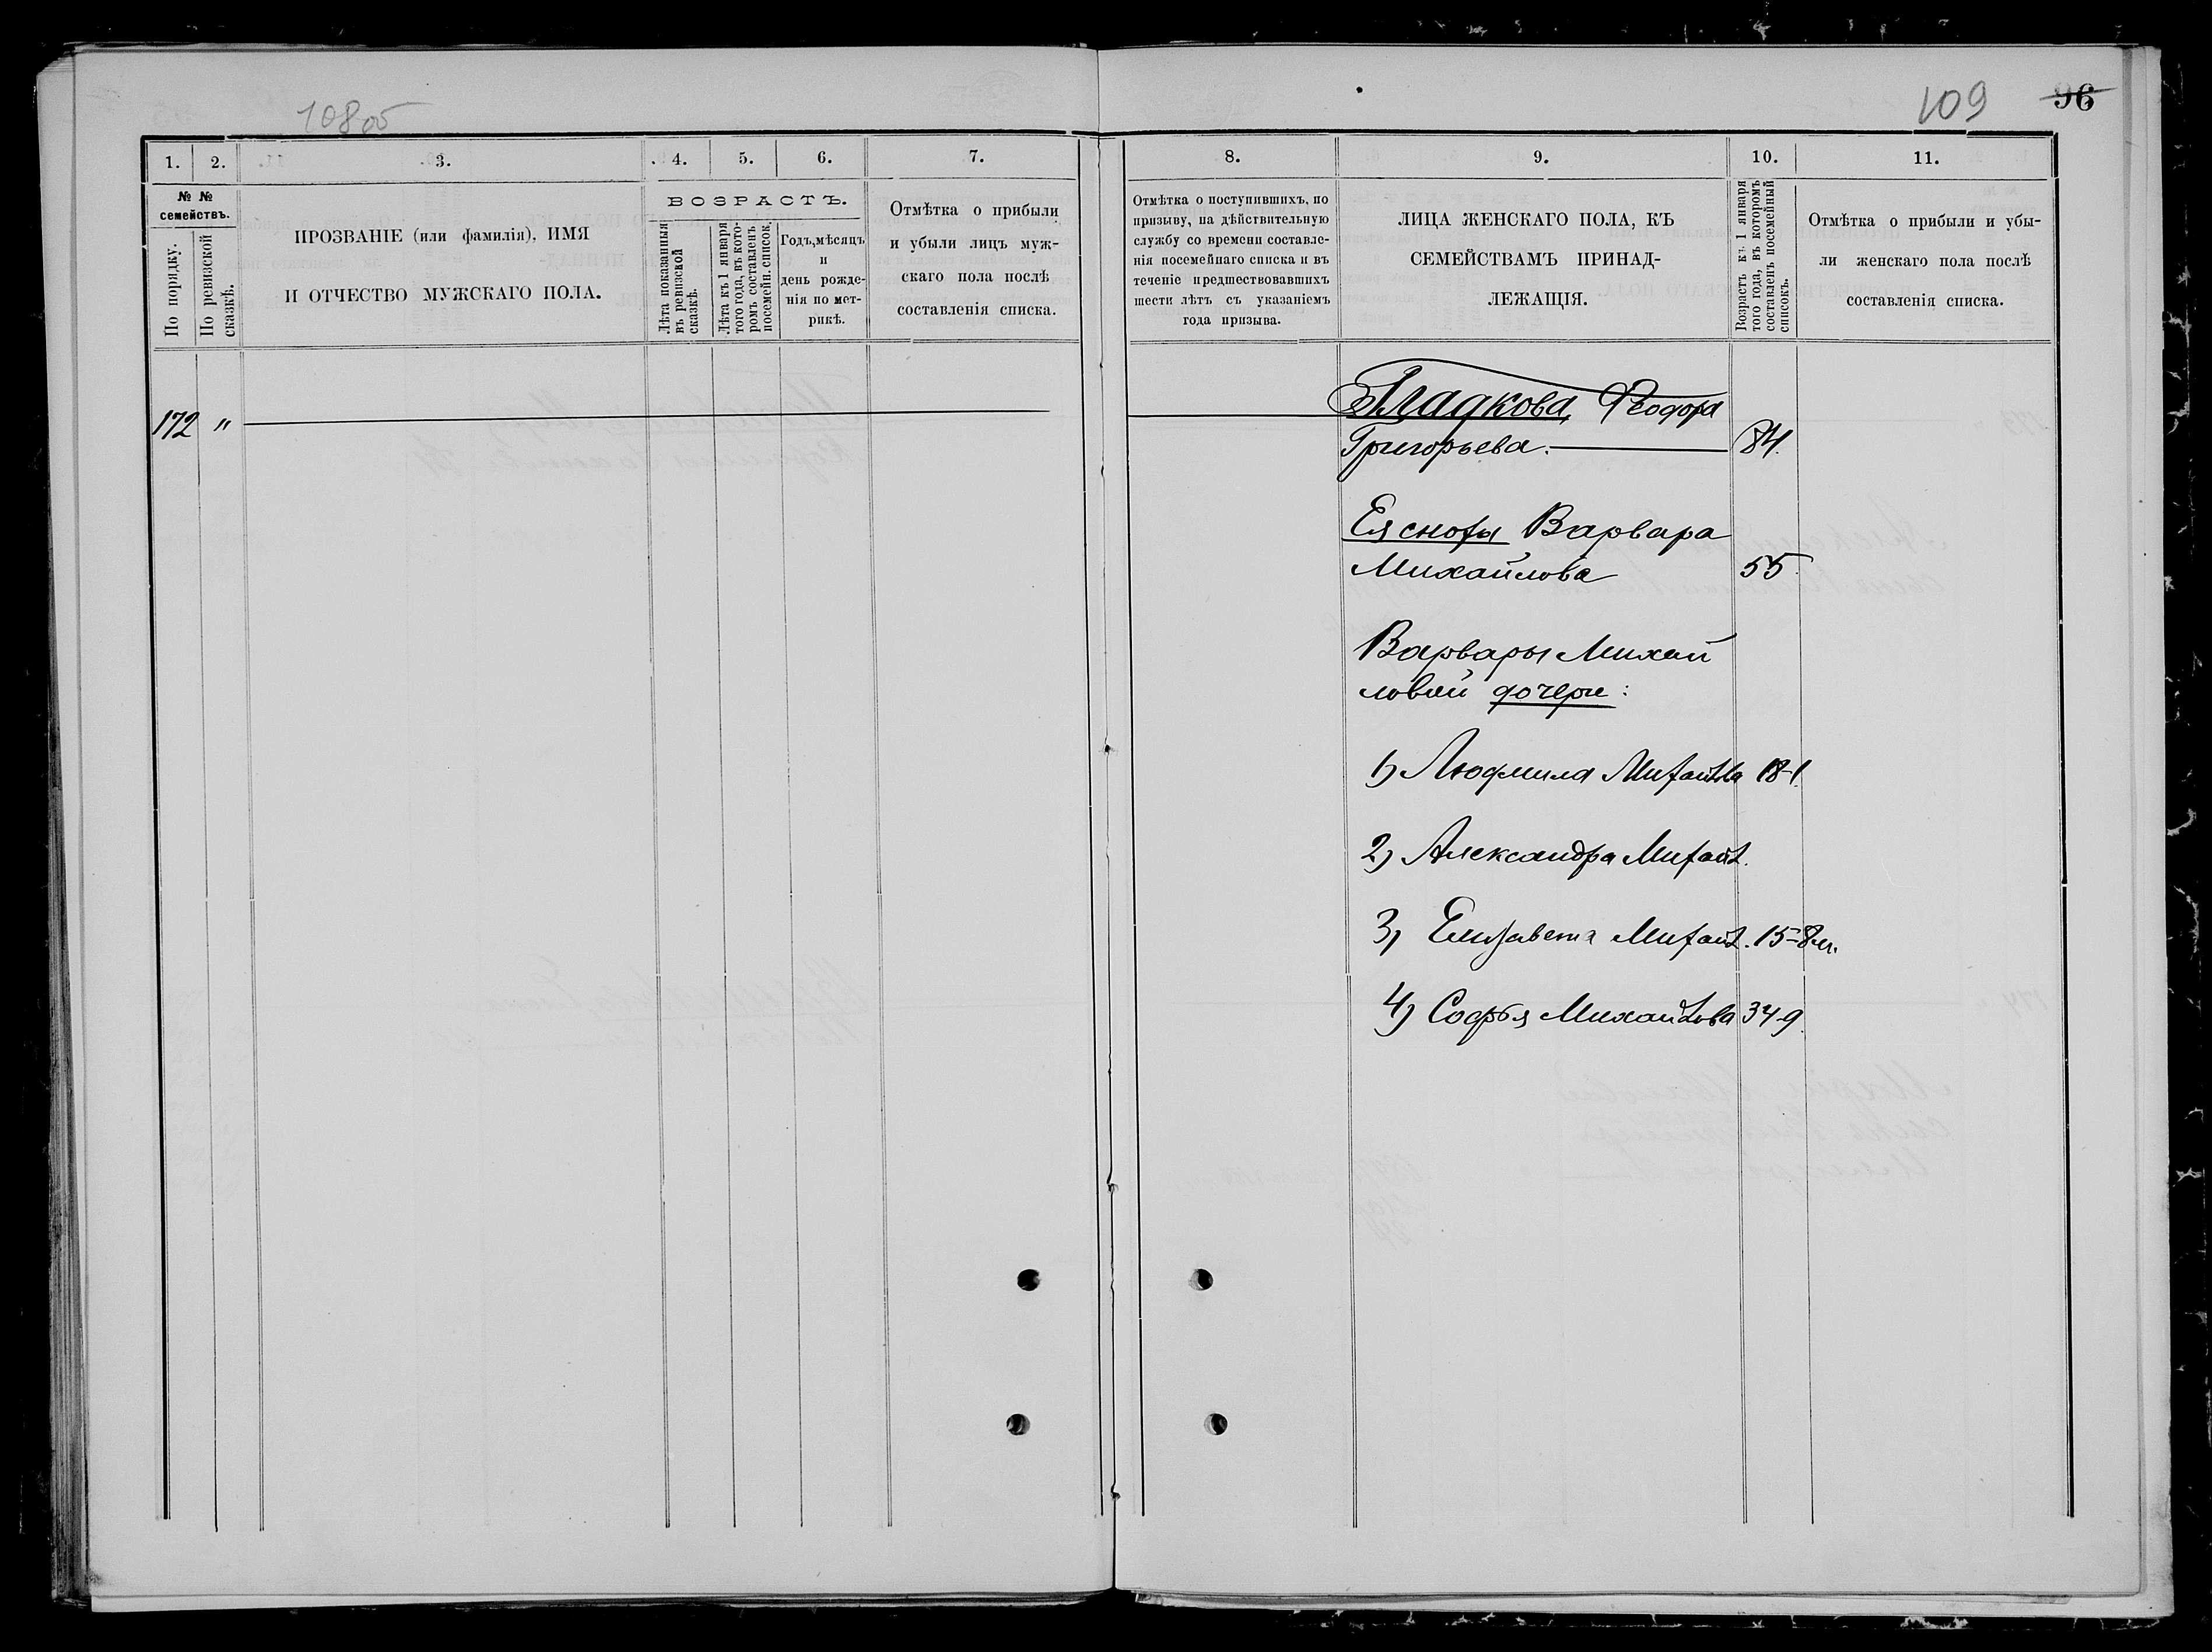 108об
109 96
1. 2. 3. 4. 5. 6. 7.
№ №
семействъ.
По порядку.
По ревизской
сказкѣ.
ПРОЗВАНІЕ (или фамилія), ИМЯ
И ОТЧЕСТВО МУЖСКАГО ПОЛА.
ВОЗРАСТЪ.
Лѣта показанныя
въ ревизской
сказкѣ.
Лѣта къ 1 января
того года, въ кото-
ромъ составленъ
посемейн. список.
Годъ, мѣсяцъ
и
день рожде-
нія по мет-
рикѣ.
Отмѣтка о прибыли
и убыли лицъ муж-
скаго пола послѣ
составленія списка.
8. 9. 10. 11.
Отмѣтка о поступившихъ, по
призыву, на дѣйствительную
службу со времени составле-
нія посемейнаго списка и въ
теченіе предшествовавшихъ
шести лѣтъ съ указаніемъ
года призыва.
ЛИЦА ЖЕНСКАГО ПОЛА, КЪ
СЕМЕЙСТВАМЪ ПРИНАД-
ЛЕЖАЩІЯ.
Возрастъ къ 1 января
того года, въ которомъ
составленъ посемейный
списокъ.
Отмѣтка о прибыли и убы-
ли женскаго пола послѣ
составленія списка.
172 "
Гладкова, Ѳеодора
Григорьева. 84.
Ея сноха Варвара
Михайлова 55.
Варвары Михай
ловой дочери:
1) Людмила Михайлва 18-1.
2) Александра Михайл.
3) Елизавета Михайл. 15-8м.
4) Софья Михайлова 34-9.